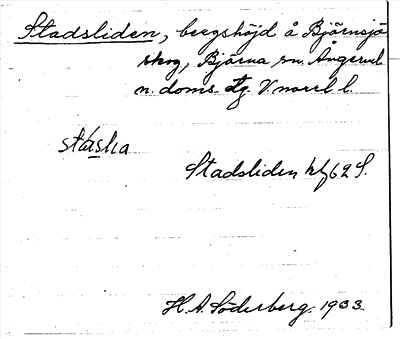 Stadsliden, bergshöjd å Björnsjö
skog, Björna sn. Ångerml.
n. doms. tg. V.norrl. l.
Stadsliden kbl 62 S.
H. A. Söderberg. 1933.